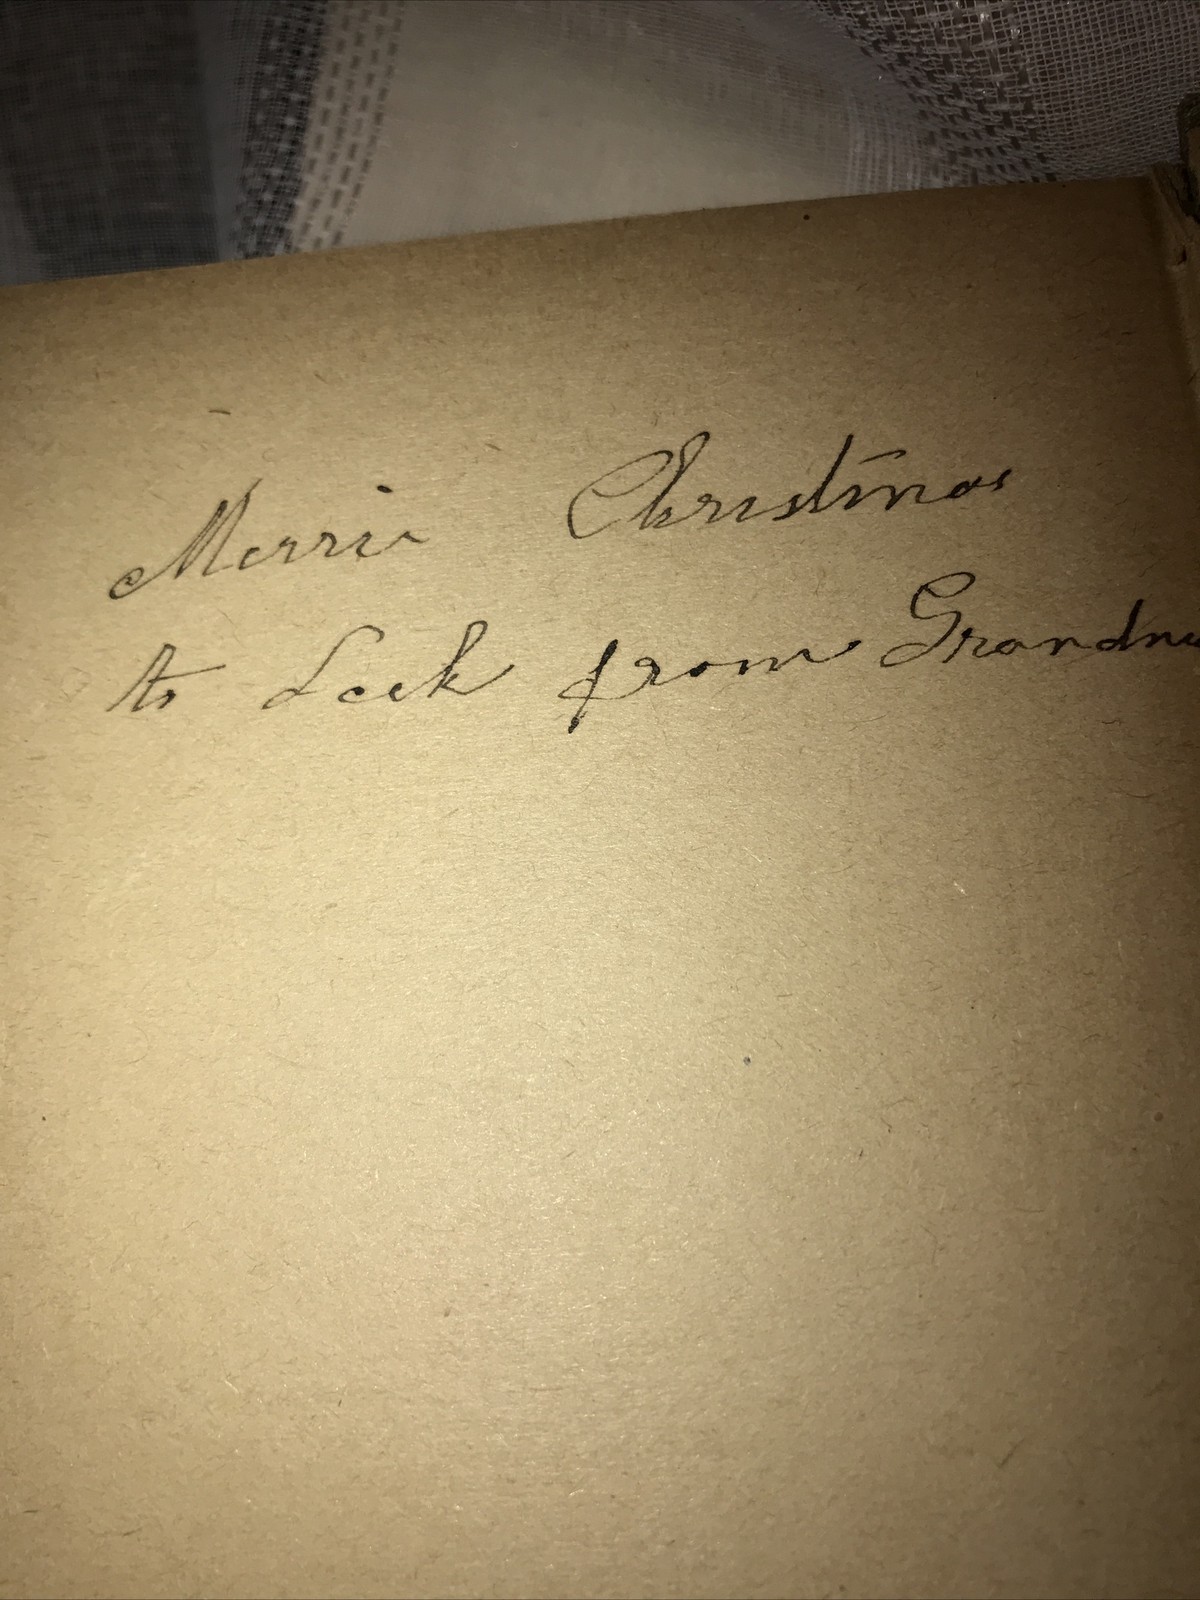 Merrie Christmas
to Leek from Grandm